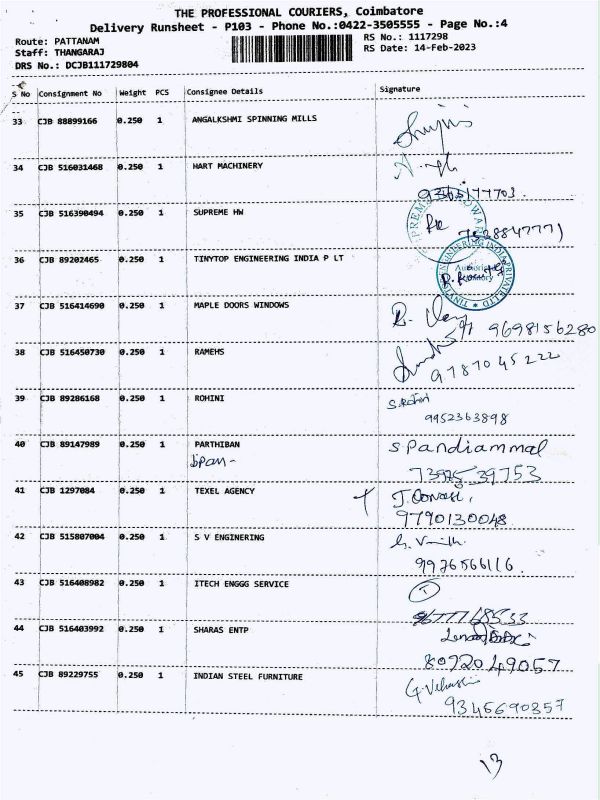 THE PROFESSIONAL COURIERS, Coimbatore
Delivery Runsheet - P103 - Phone No.:0422-3505555 - Page No.:4
Route: PATTANAM RS No.: 1117298
Staff: THANGARAJ RS Date: 14-Feb-2023
DRS No.: DCJB111729804
S No Consignment No Weight PCS Consignee Details Signature
33 CJB 88899166 0.250 1 ANGALKSHMI SPINNING MILLS
34 CJB 516031468 0.250 1 HART MACHINERY
35 CJB 516390494 0.250 1 SUPREME HW
36 CJB 89202465 0.250 1 TINYTOP ENGINEERING INDIA P LT
37 CJB 516414690 0.250 1 MAPLE DOORS WINDOWS
9698156280
38 CJB 516450730 0.250 1 RAMEHS
9787045222
39 CJB 89286168 0.250 1 ROHINI
9952363898
40 CJB 89147989 0.250 1 PARTHIBAN S. Pandiammal
41 CJB 1297084 0.250 1 TEXEL AGENCY
9790130048
42 CJB 515807004 0.250 1 S V ENGINERING
9976566116.
43 CJB 516408982 0.250 1 ITECH ENGGG SERVICE
44 CJB 516403992 0.250 1 SHARAS ENTP
8072049057
45 CJB 89229755 0.250 1 INDIAN STEEL FURNITURE
9345690357
13